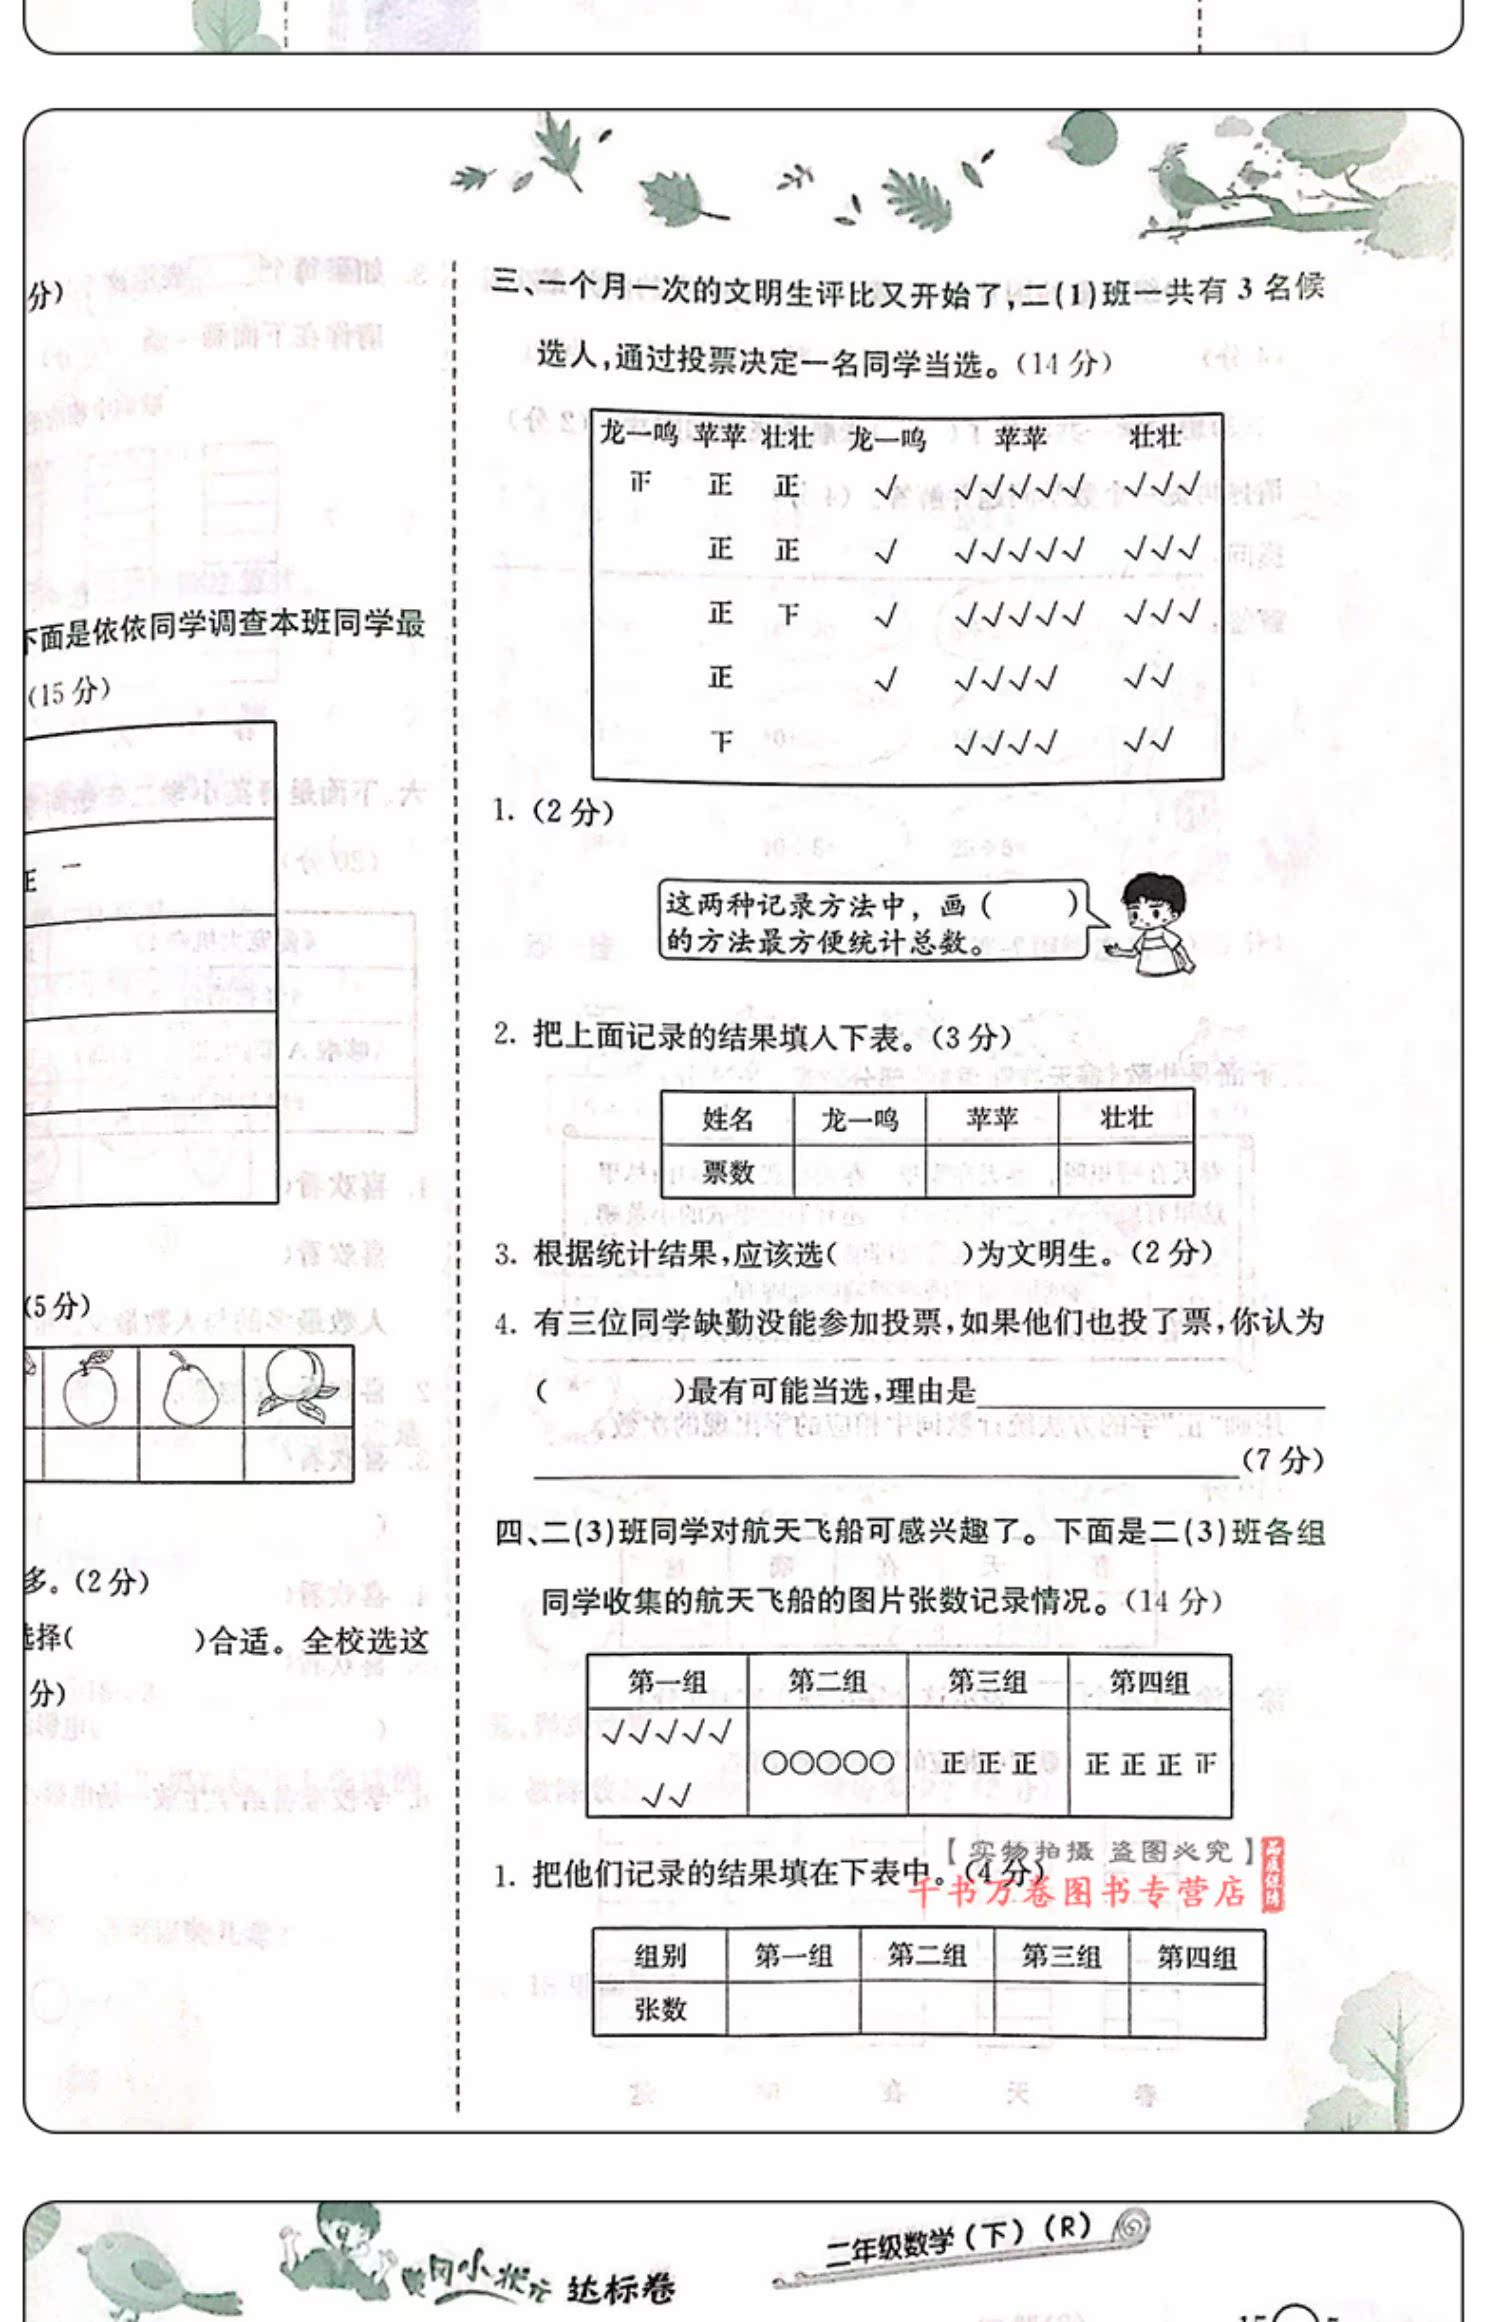 分）
下面是依依同学调查本班同学最
（15分）
正 一
（5分）
多。（2分）
选择（　　　）合适。全校选这
分）
三、一个月一次的文明生评比又开始了，二（1）班一共有 3 名候
选人，通过投票决定一名同学当选。（14 分）
龙一鸣 苹苹 壮壮 龙一鸣 苹苹 壮壮
正 正 √ √√√√√ √√√
正 正 √ √√√√√ √√√
正 √ √√√√√ √√√
正 √ √√√√ √√
√√√√ √√
1.（2 分）
这两种记录方法中，画（　　）
的方法最方便统计总数。
2. 把上面记录的结果填入下表。（3 分）
姓名 龙一鸣 苹苹 壮壮
票数
3. 根据统计结果，应该选（　　　）为文明生。（2 分）
4. 有三位同学缺勤没能参加投票，如果他们也投了票，你认为
（　　　）最有可能当选，理由是
（7 分）
四、二（3）班同学对航天飞船可感兴趣了。下面是二（3）班各组
同学收集的航天飞船的图片张数记录情况。（14 分）
第一组 第二组 第三组 第四组
√√√√√
√√ ○○○○○ 正 正 正 正 正 正
【实物拍摄 盗图必究】
1. 把他们记录的结果填在下表中。（4 分）
千书万卷图书专营店
组别 第一组 第二组 第三组 第四组
张数
二年级数学（下）（R）
黄冈小状元 达标卷